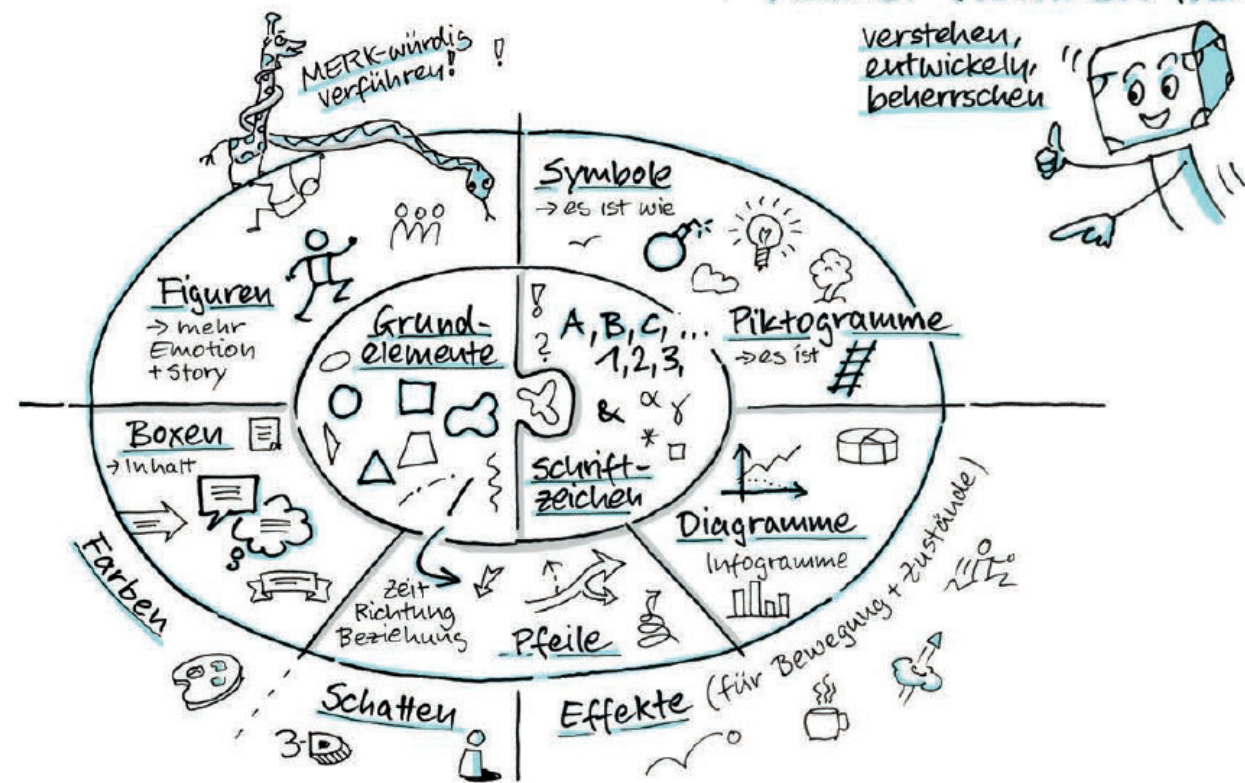 verstehen,
entwickeln,
beherrschen
MERK-würdig
verführen!
!
Symbole
→ es ist wie
Figuren
→ mehr
Emotion
+ Story
Grund-
elemente
!
?
A, B, C, ...
1, 2, 3,
& α γ
*
Schrift-
zeichen
Piktogramme
→ es ist
Boxen
→ Inhalt
Diagramme
Infogramme
Zeit
Richtung
Beziehung
Pfeile
Farben
Schatten
3-D
Effekte (für Bewegung + Zustände)